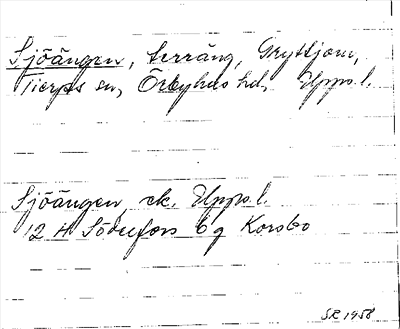 Sjöängen, terräng, Gryttjom,
Tierps sn, Örbyhus hd, Upps.l.
Sjöängen, ek. Upps.l.
12 H Söderfors 6 g Korsbo
SR 1958